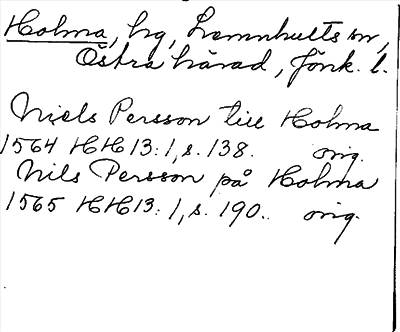 Holma, hg, Lemnhults sn,
Östra härad, Jönk. l.
Niels Persson till Holma
1564 HH13:1, s. 138. orig.
Nils Persson på Holma
1565 HH13:1, s. 190. orig.